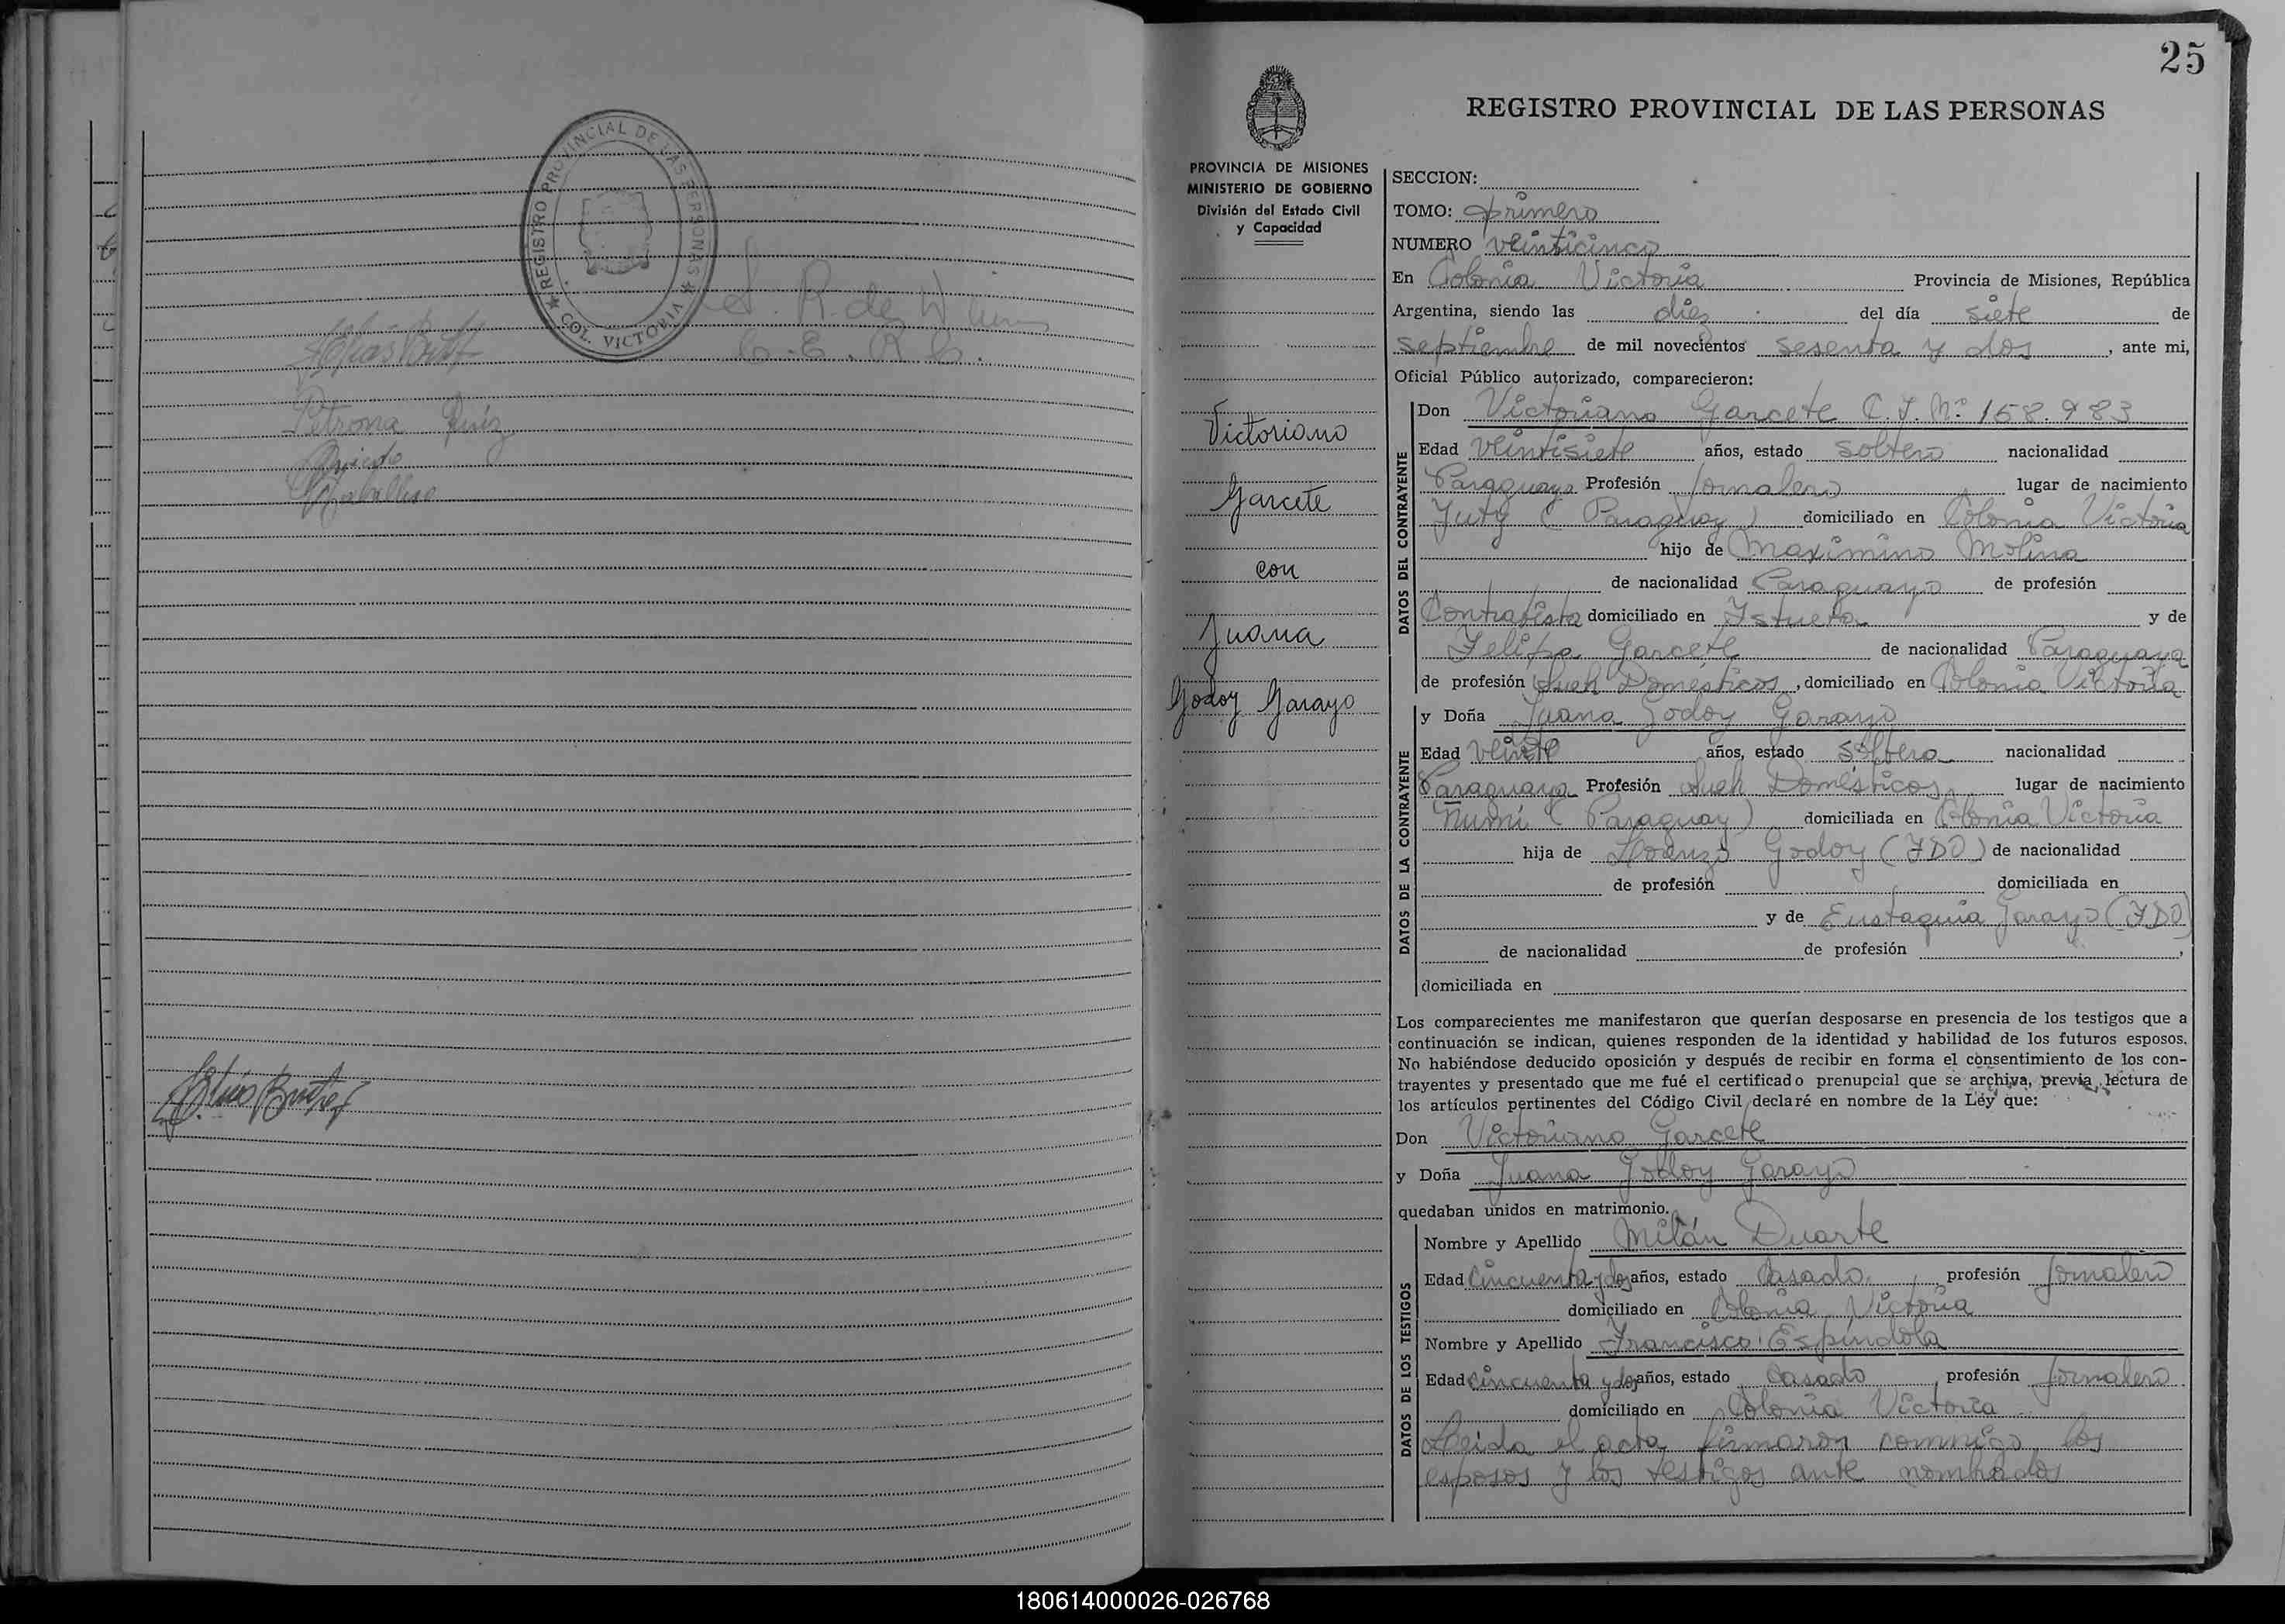 REGISTRO PROVINCIAL DE LAS PERSONAS
COL. VICTORIA
Petrona Ruiz
25
REGISTRO PROVINCIAL DE LAS PERSONAS
PROVINCIA DE MISIONES
MINISTERIO DE GOBIERNO
División del Estado Civil
y Capacidad
Victoriano
Garcete
con
Juana
Godoy Garayo
SECCION:
TOMO: primero
NUMERO veinticinco
En Colonia Victoria Provincia de Misiones, República
Argentina, siendo las diez del día siete de
septiembre de mil novecientos sesenta y dos, ante mi,
Oficial Público autorizado, comparecieron:
DATOS DEL CONTRAYENTE
Don Victoriano Garcete C.I. Nº 158.983
Edad veintisiete años, estado soltero nacionalidad
Paraguayo Profesión Jornalero lugar de nacimiento
Yuty (Paraguay) domiciliado en Colonia Victoria
hijo de Maximino Molina
de nacionalidad Paraguayo de profesión
Contratista domiciliado en
y de
Felipa Garcete de nacionalidad Paraguaya
de profesión Domésticos, domiciliado en Colonia Victoria
DATOS DE LA CONTRAYENTE
y Doña Juana Godoy Garayo
Edad veinte años, estado soltera nacionalidad
Paraguaya Profesión Domésticos, lugar de nacimiento
Ñumí (Paraguay) domiciliada en Colonia Victoria
hija de Lorenzo Godoy (FDO) de nacionalidad
de profesión domiciliada en
y de Eustaquia Garayo (FDO)
de nacionalidad de profesión ,
domiciliada en
Los comparecientes me manifestaron que querían desposarse en presencia de los testigos que a
continuación se indican, quienes responden de la identidad y habilidad de los futuros esposos.
No habiéndose deducido oposición y después de recibir en forma el consentimiento de los con-
trayentes y presentado que me fué el certificado prenupcial que se archiva, previa lectura de
los artículos pertinentes del Código Civil declaré en nombre de la Ley que:
Don Victoriano Garcete
y Doña Juana Godoy Garayo
quedaban unidos en matrimonio.
DATOS DE LOS TESTIGOS
Nombre y Apellido Milán Duarte
Edad Cincuenta y dos años, estado Casado, profesión Jornalero
domiciliado en Colonia Victoria
Nombre y Apellido Francisco Espindola
Edad cincuenta y dos años, estado Casado, profesión Jornalero
domiciliado en Colonia Victoria
Leida el acta, firmaron conmigo, los
esposos y los testigos ante nombrados
180614000026-026768